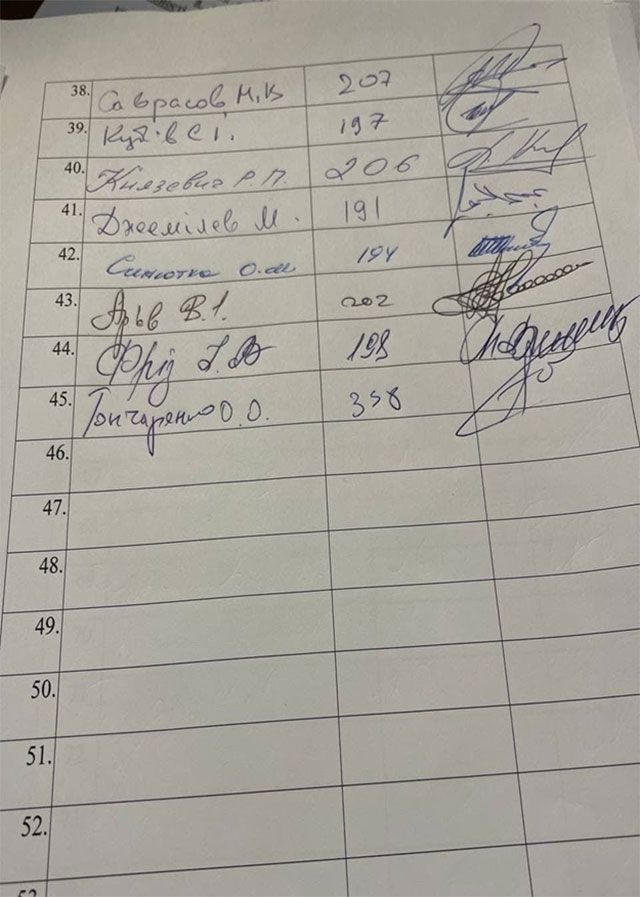 38. Саврасов М.В 207
39. Куб·в С І. 197
40. Князевич Р.П. 206
41. Джемілев М. 191
42. Синютка О.М 194
43. Арьв В.І. 202
44. Фріз І.В 198
45. Гончаренко О.О. 358
46.
47.
48.
49.
50.
51.
52.
53